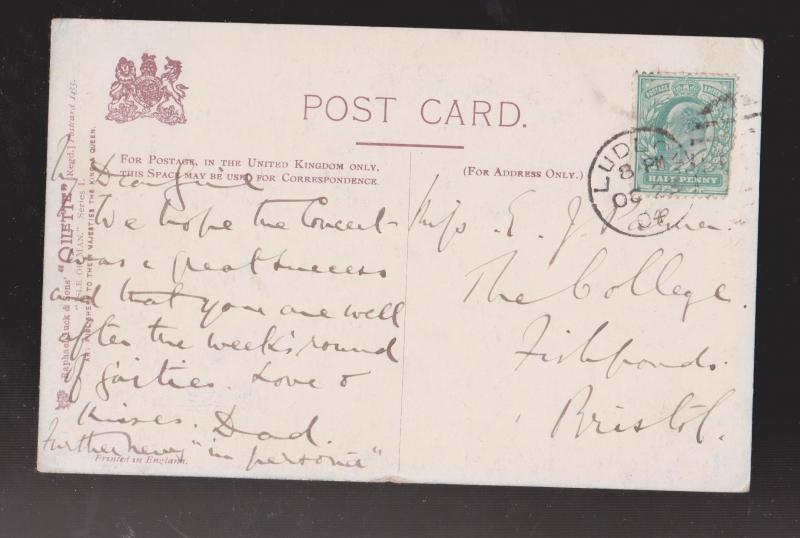 POST CARD.
FOR POSTAGE, IN THE UNITED KINGDOM ONLY,
THIS SPACE MAY BE USED FOR CORRESPONDENCE
(FOR ADDRESS ONLY.)
Raphael Tuck & Sons' "OILETTE" [Regd.] Postcard 1455.
"ISLE OF MAN." Series I.
ART PUBLISHERS TO THEIR MAJESTIES THE KING & QUEEN.
POSTAGE
HALF PENNY
LUDL
8 PM
OC
04
My Dear girl
We hope the Concert
was a great success
and that you are well
after the week's round
of gaities. Love &
Kisses. Dad.
Further news "in persona"
Printed in England.
Miss. E. J.
The College.
Fishponds.
Bristol.